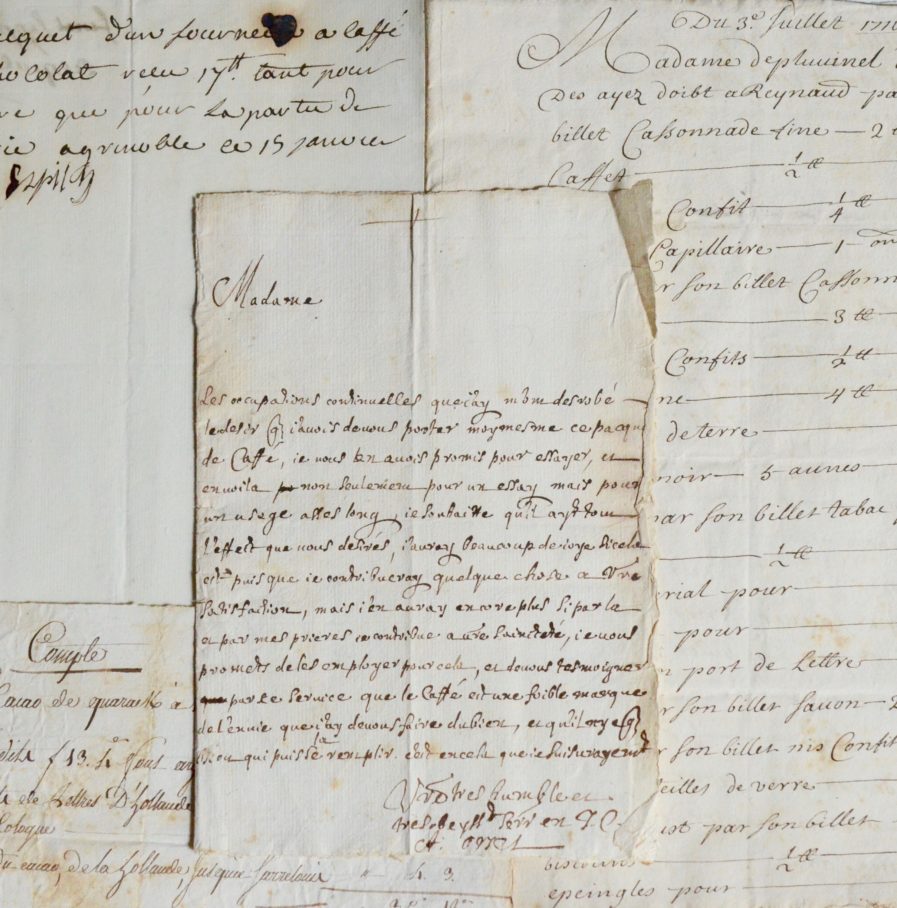 dun fourneau a caffé
chocolat recu 17tt tant pour
que pour la partie de
a grenoble ce 15 janvier
Du 3e Juillet
Madame depluvinel
Des ayez doibt a Reynaud pa
billet Cassonnade fine — 2
Caffet — ½ tt
Confit — ¼ tt
Capillaire — 1 on
r son billet Cassonn
— 3 tt
Confits — ½ tt
ne — 4 tt
de terre —
noir — 5 aunes
par son billet tabac
— ½ tt
rial pour —
pour —
n port de Lettre —
r son billet savon — 2
r son billet mis Confit
eilles de verre —
par son billet
— ½ tt
epeingles pour —
Madame
Les occupations continuelles que j'ay m'ont desrobé
le desir que j'avois de vous porter moymesme ce pacqu
de Caffé, ie vous en avois promis pour essayer, et
en voila non seulement pour un essay mais pour
un usage asses long, ie souhaitte qu'il ayt tout
l'effect que vous desirés, j'auray beaucoup de ioye si cela
est puisque ie contribueray quelque chose a Vre
satisfaction, mais i'en auray encore plus si par la
et par mes prieres ie contribue a vre saincteté, ie vous
promets de les employer pour cela, et de vous tesmoigner
par ce service que le Caffé est une foible marque
de l'envie que j'ay de vous faire du bien, et qu'il n'y a
qui puisse la remplir. c'est en cela que ie suis vrayemt
Vre tres humble et
tres obeyst serv en J.C.
Compte
Cacao de quarante a
f 13. 4
de lettres D'hollande
Cologne
Du cacao, de la hollande, jusqu'a Sarrelouis " 4. 3.